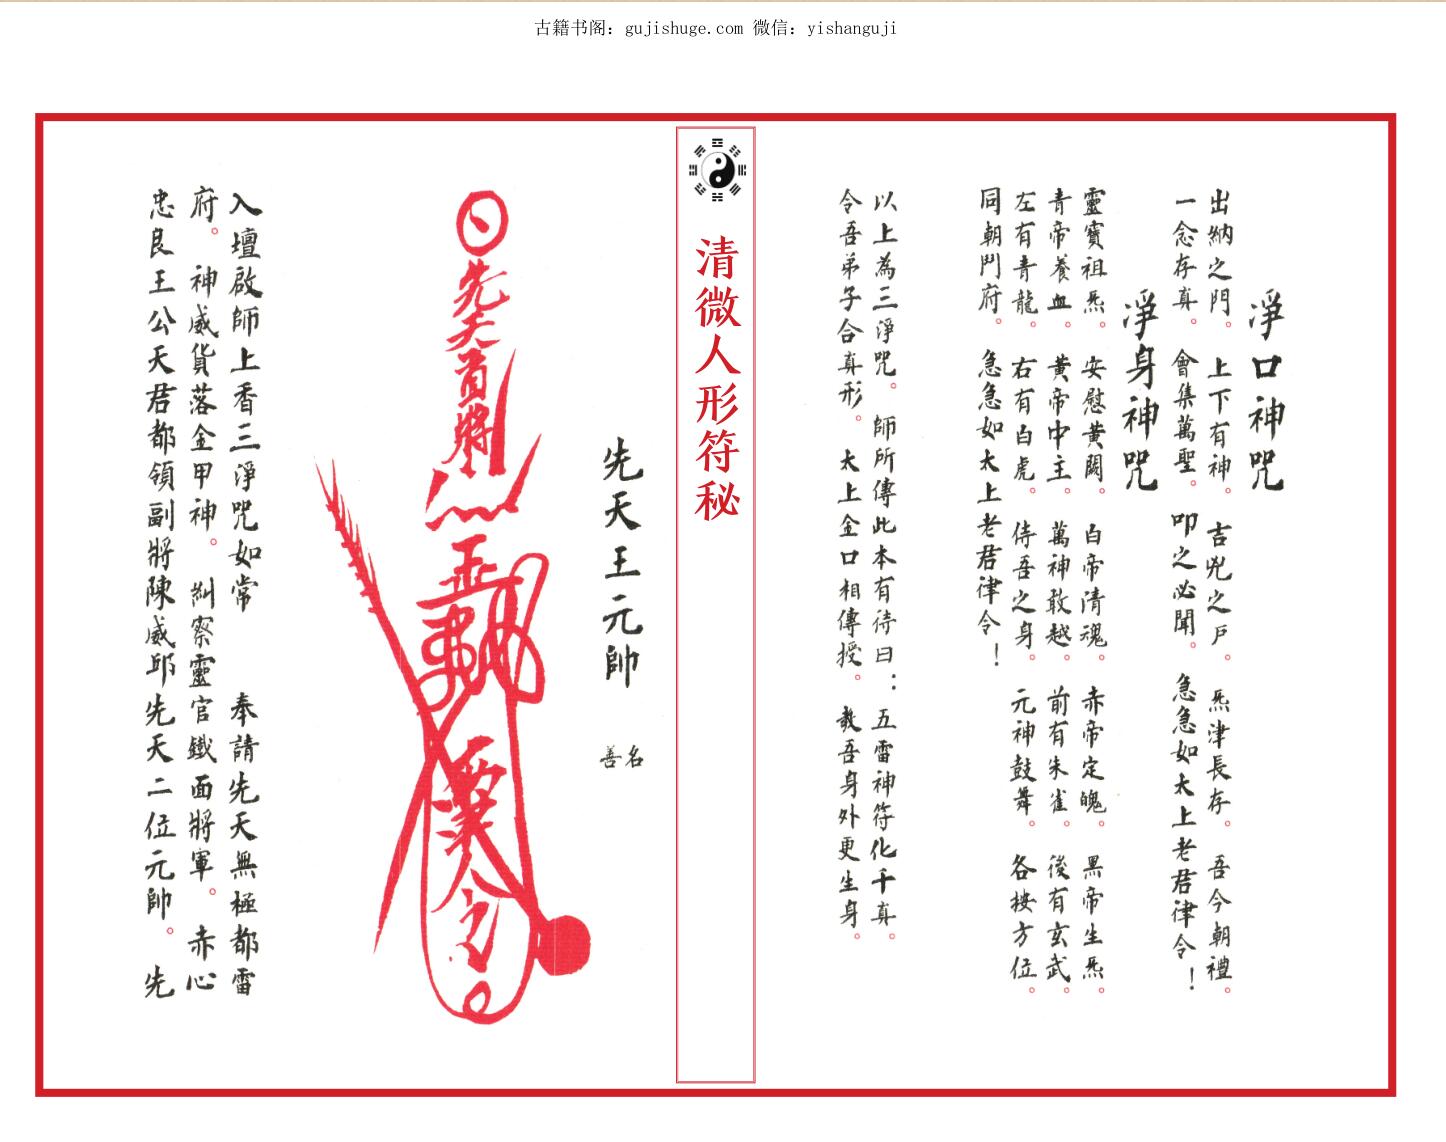 古籍书阁：gujishuge.com 微信：yishanguji
淨口神咒
出納之門。上下有神。吉兇之戶。炁津長存。吾今朝禮。
一念存真。會集萬聖。叩之必聞。急急如太上老君律令！
淨身神咒
靈寶祖炁。安慰黃闕。白帝清魂。赤帝定魄。黑帝生炁。
青帝養血。黃帝中主。萬神敢越。前有朱雀。後有玄武。
左有青龍。右有白虎。侍吾之身。元神鼓舞。各按方位。
同朝鬥府。急急如太上老君律令！
以上為三淨咒。師所傳此本有待曰：五雷神符化千真。
令吾弟子合真形。太上金口相傳授。教吾身外更生身。
清微人形符秘
先天王元帥
名
善
先天首將
令
入壇啟師上香三淨咒如常 奉請先天無極都雷
府。神威貨落金甲神。糾察靈官鐵面將軍。赤心
忠良王公天君都領副將陳威邱先天二位元帥。先